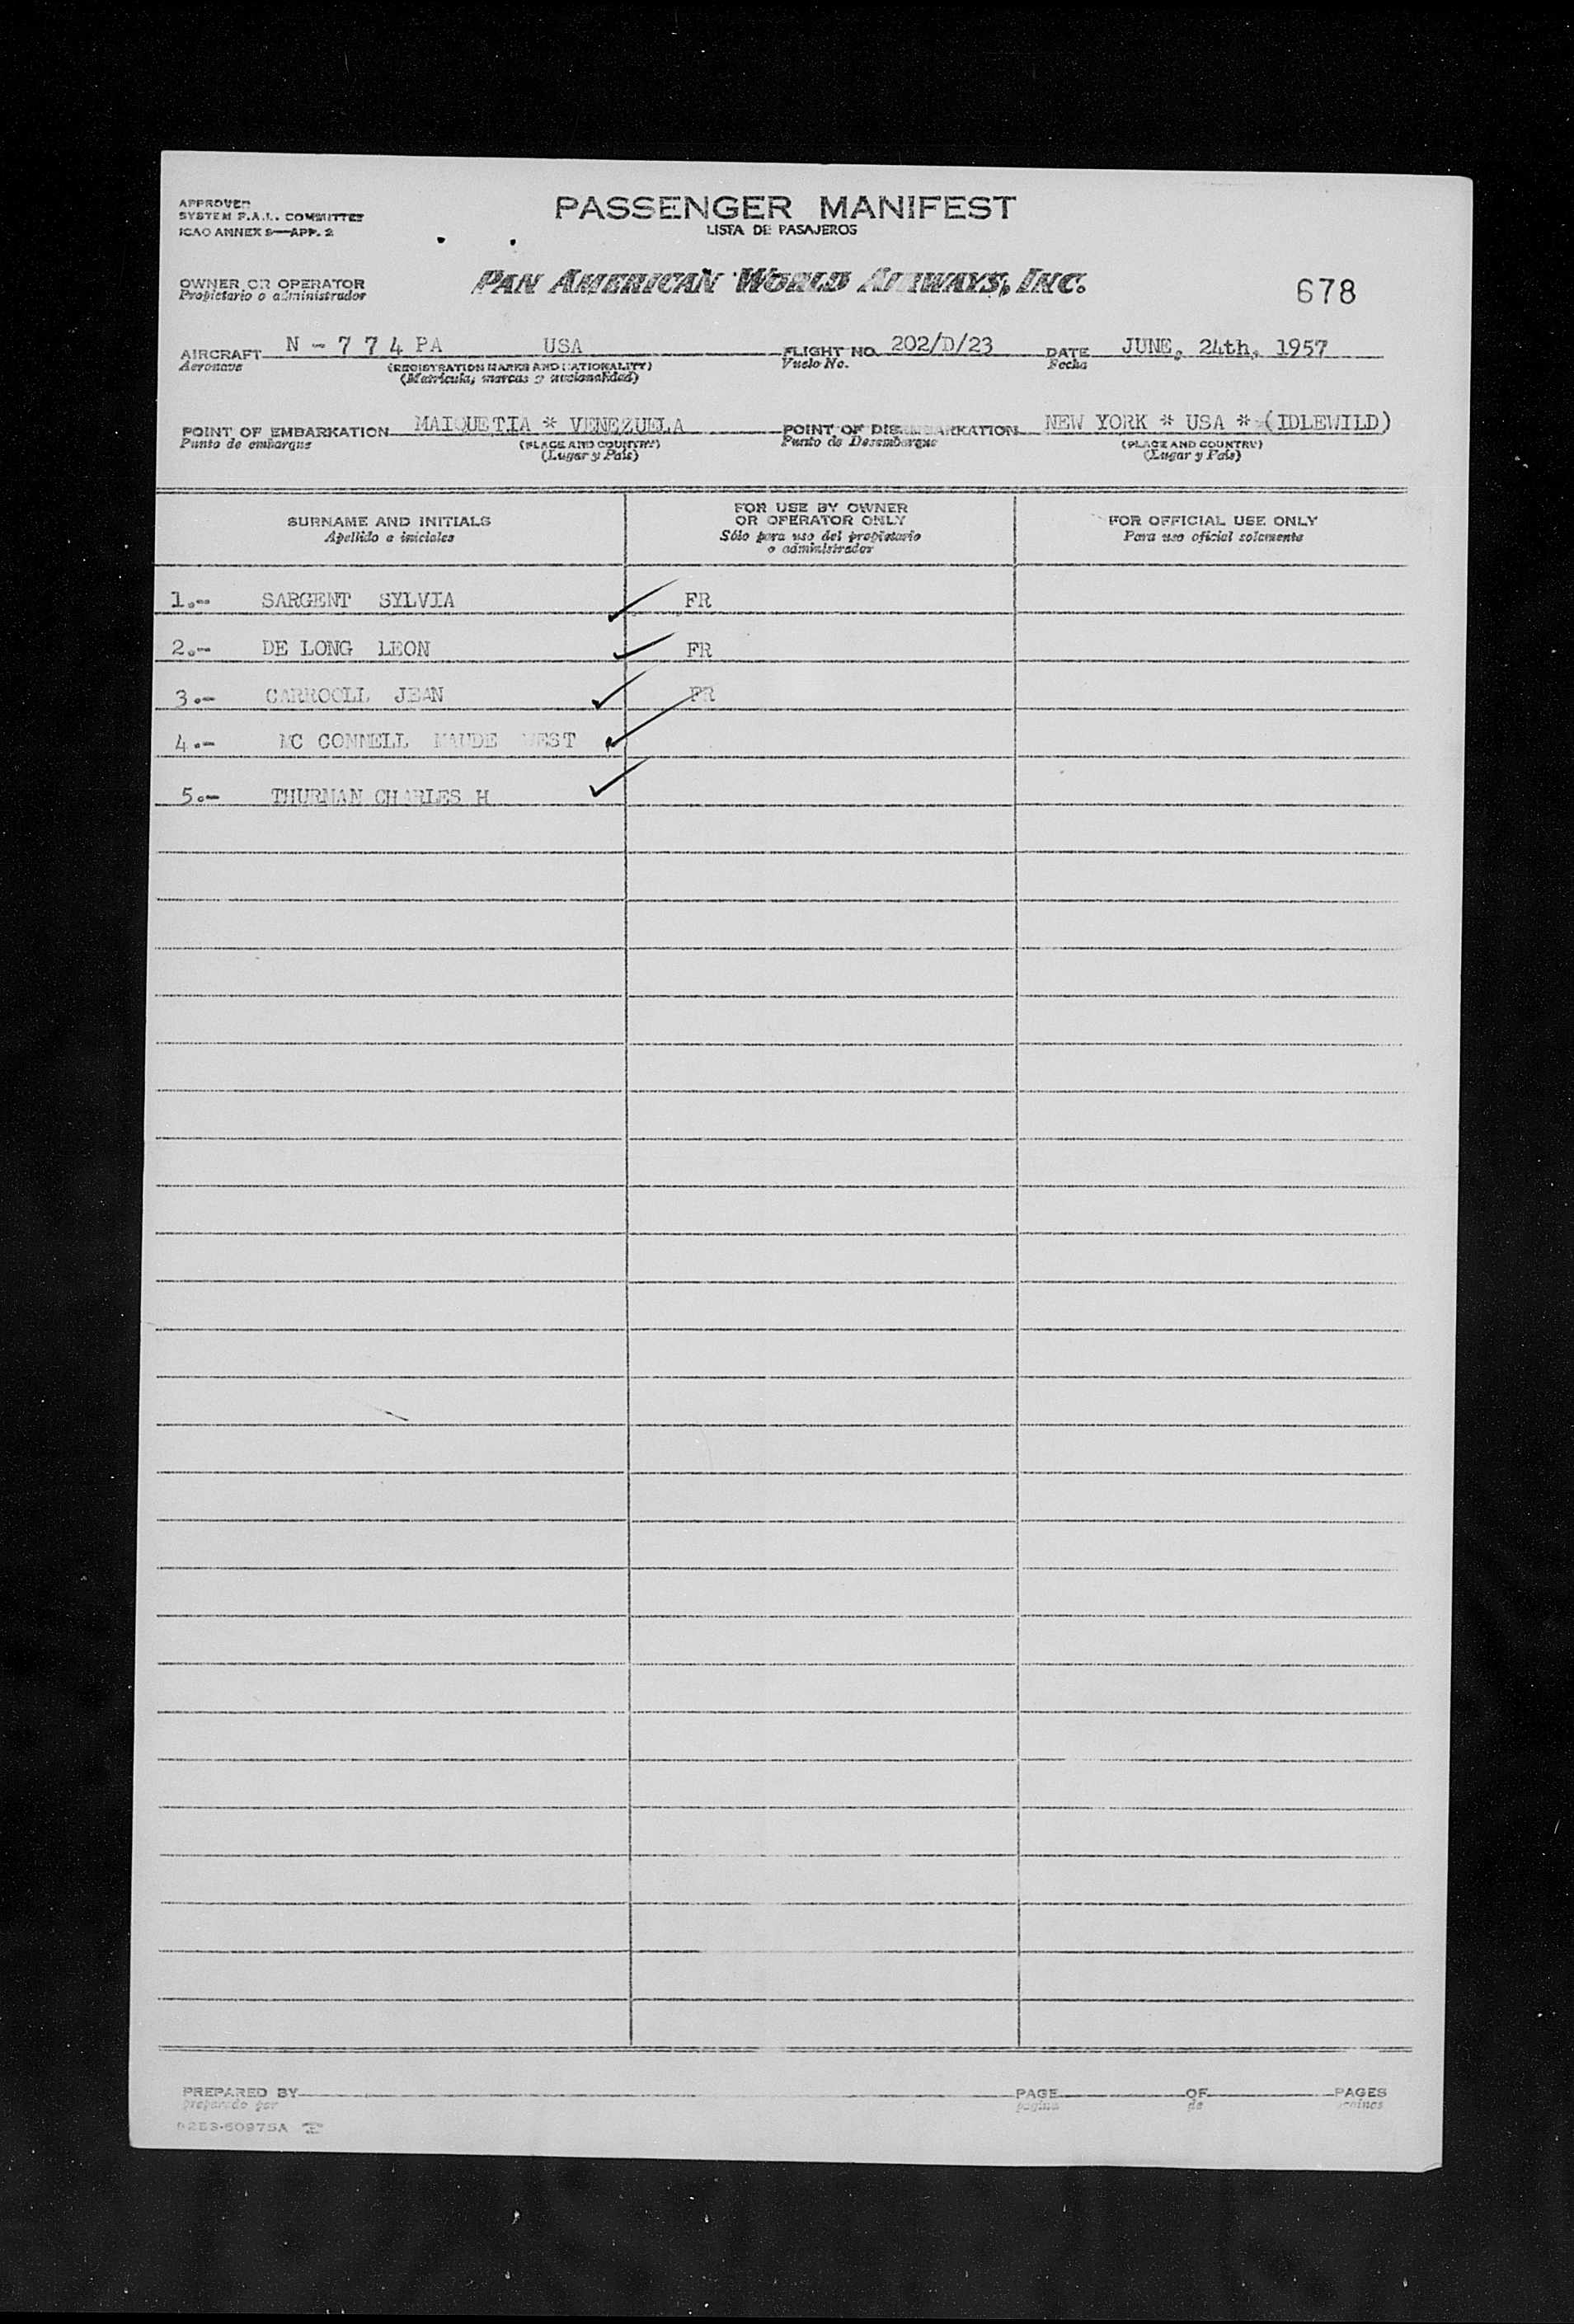 APPROVED
SYSTEM F.A.L. COMMITTEE
ICAO ANNEX 9—APP. 2
PASSENGER MANIFEST
LISTA DE PASAJEROS
OWNER OR OPERATOR
Propietario o administrador
PAN AMERICAN WORLD AIRWAYS, INC.
678
AIRCRAFT N - 7 7 4 PA USA FLIGHT NO. 202/D/23 DATE JUNE, 24th, 1957
Aeronave (REGISTRATION MARKS AND NATIONALITY) Vuelo No. Fecha
(Matricula, marcas y nacionalidad)
POINT OF EMBARKATION MAIQUETIA * VENEZUELA POINT OF DISEMBARKATION NEW YORK * USA * (IDLEWILD)
Punto de embarque (PLACE AND COUNTRY) Punto de Desembarque (PLACE AND COUNTRY)
(Lugar y País) (Lugar y País)
SURNAME AND INITIALS
Apellido e iniciales
FOR USE BY OWNER
OR OPERATOR ONLY
Sólo para uso del propietario
o administrador
FOR OFFICIAL USE ONLY
Para uso oficial solamente
1.- SARGENT SYLVIA FR
2.- DE LONG LEON FR
3.- CARROOLL JEAN FR
4.- MC CONNELL MAUDE WEST
5.- THURMAN CHARLES H
PREPARED BY PAGE OF PAGES
preparado por pagina de